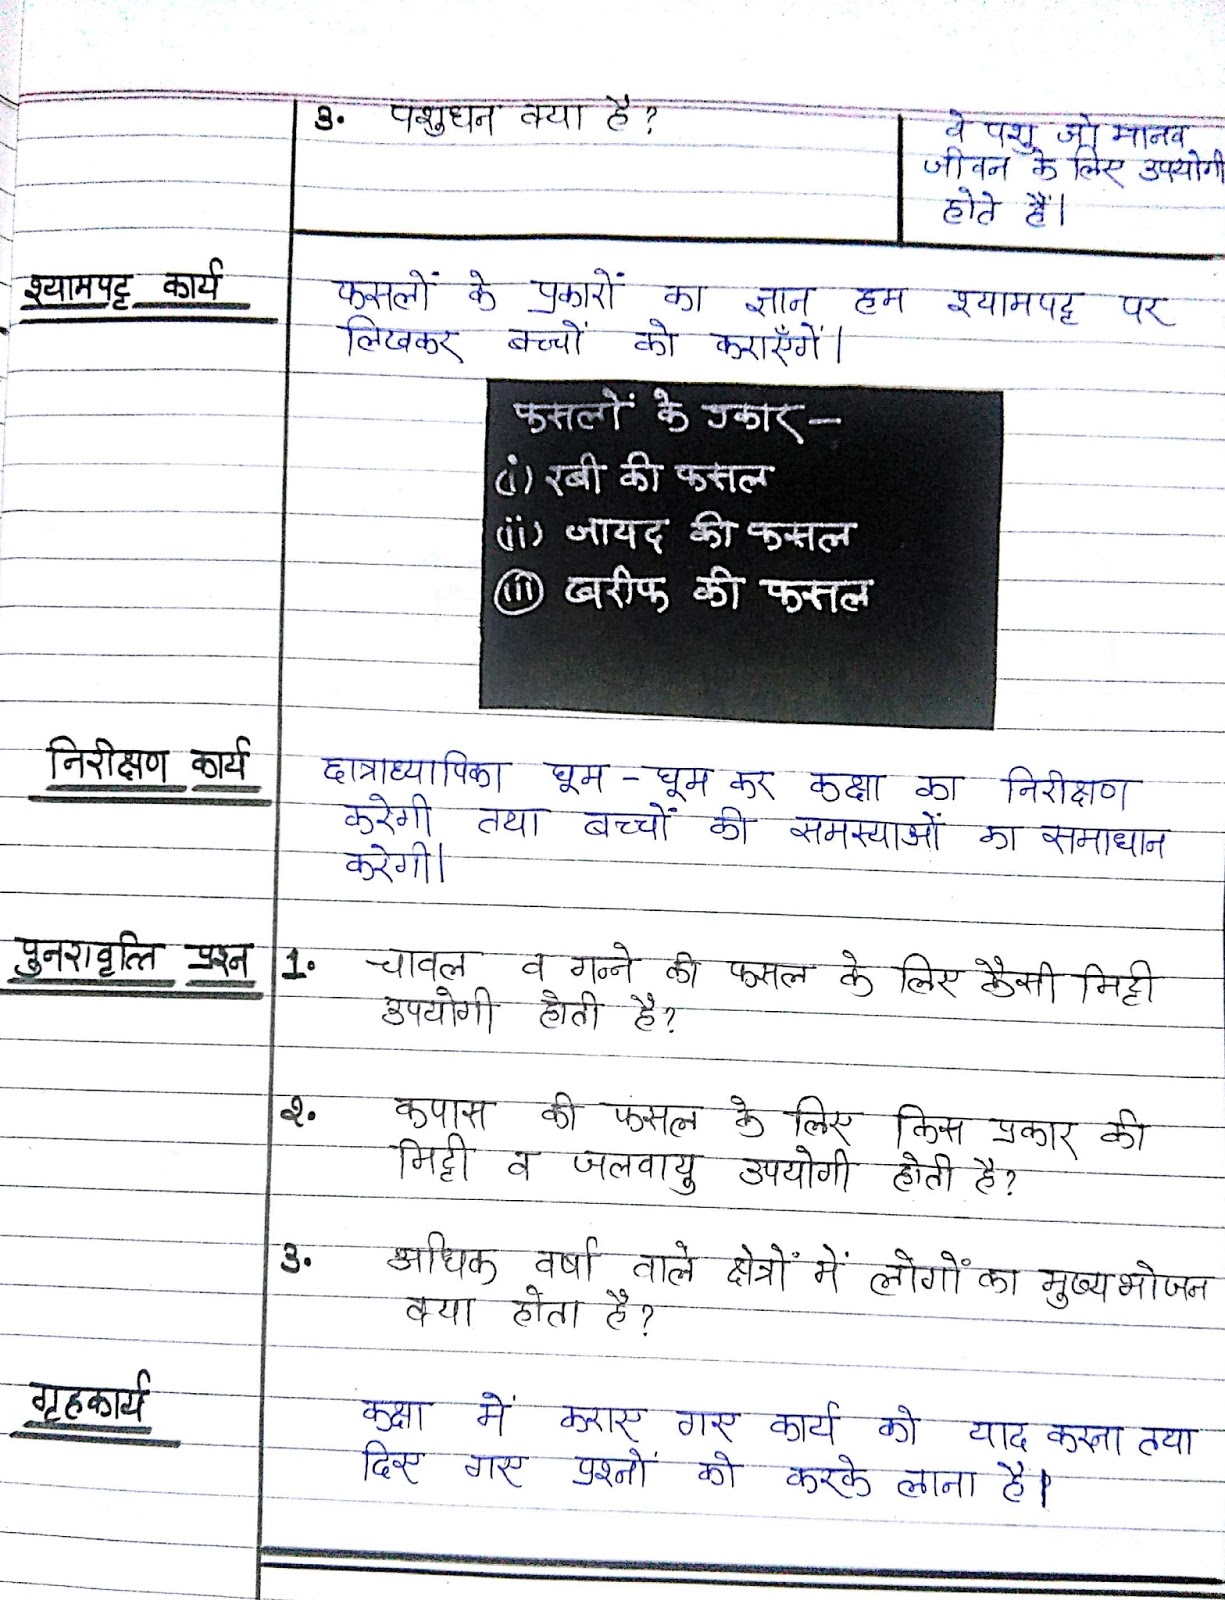 3. पशुधन क्या है?
वे पशु जो मानव
जीवन के लिए उपयोगी
होते हैं।
श्यामपट्ट कार्य
फसलों के प्रकारों का ज्ञान हम श्यामपट्ट पर
लिखकर बच्चों को कराएँगें।
फसलों के प्रकार –
(i) रबी की फसल
(ii) जायद की फसल
(iii) खरीफ की फसल
निरीक्षण कार्य
छात्राध्यापिका घूम - घूम कर कक्षा का निरीक्षण
करेगी तथा बच्चों की समस्याओं का समाधान
करेगी।
पुनरावृत्ति प्रश्न
1. चावल व गन्ने की फसल के लिए कैसी मिट्टी
उपयोगी होती है?
2. कपास की फसल के लिए किस प्रकार की
मिट्टी व जलवायु उपयोगी होती है?
3. अधिक वर्षा वाले क्षेत्रों में लोगों का मुख्य भोजन
क्या होता है?
गृहकार्य
कक्षा में कराए गए कार्य को याद करना तथा
दिए गए प्रश्नों को करके लाना है।